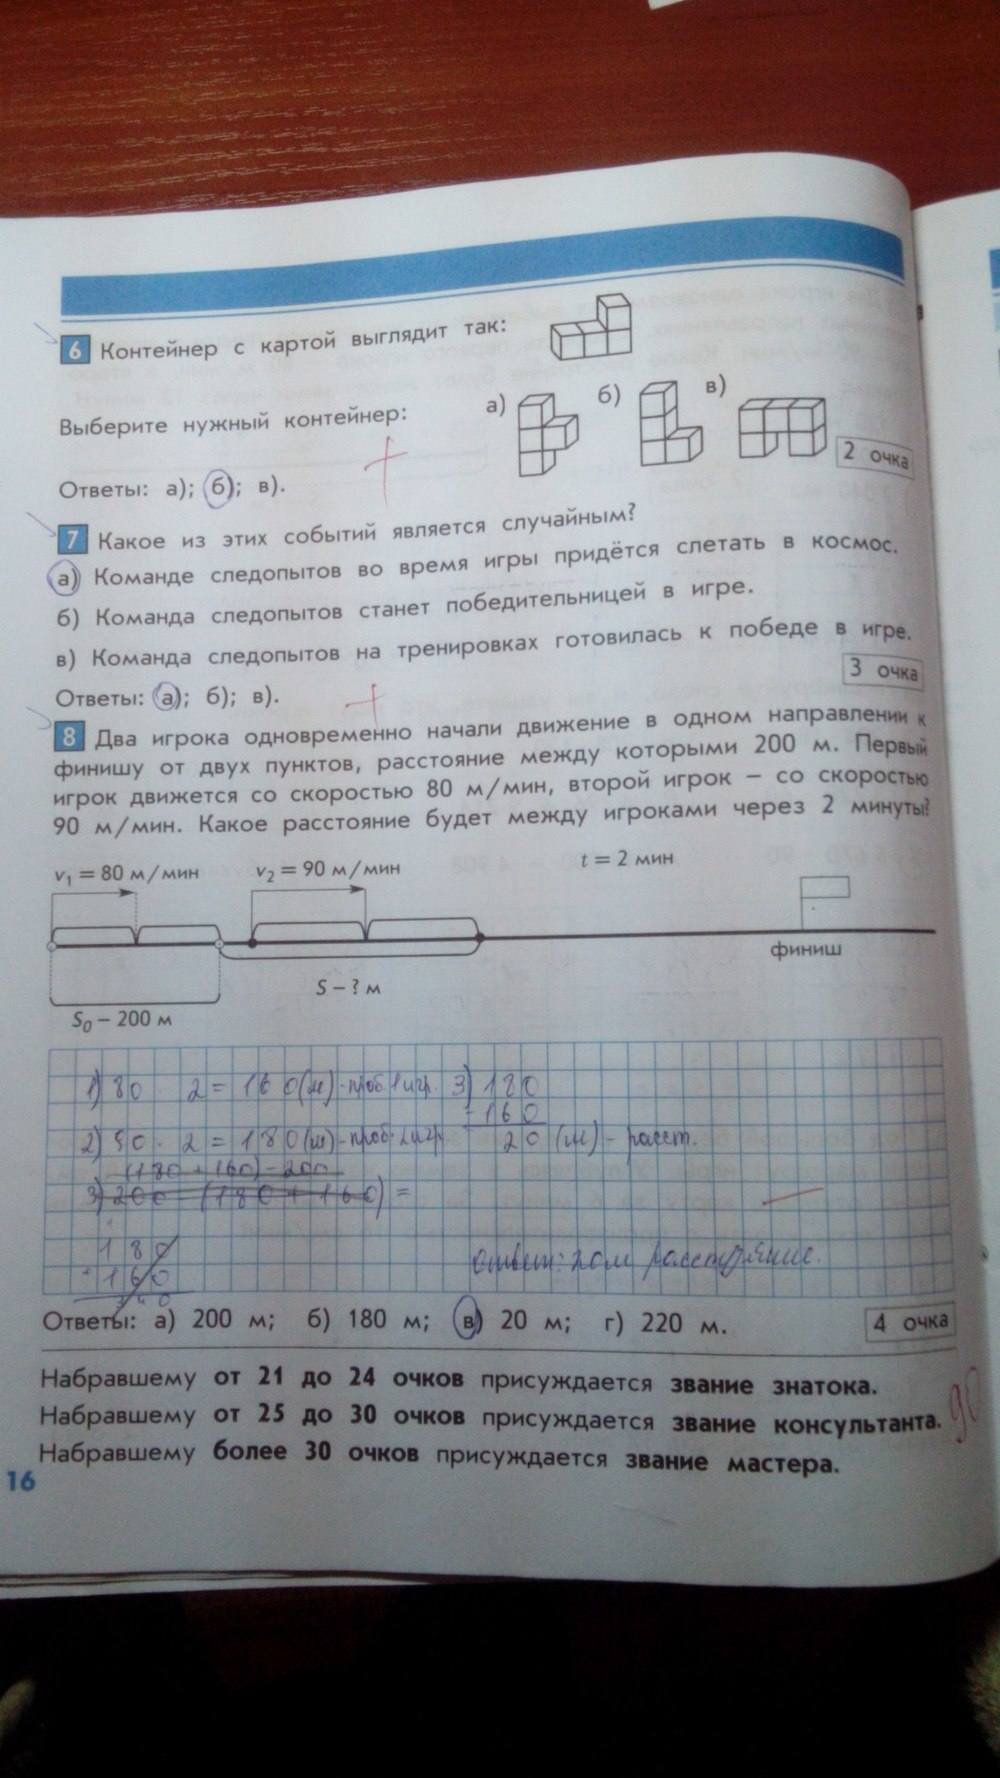 6 Контейнер с картой выглядит так:
Выберите нужный контейнер:
а) б) в)
2 очка
Ответы: а); б); в).
7 Какое из этих событий является случайным?
а) Команде следопытов во время игры придётся слетать в космос.
б) Команда следопытов станет победительницей в игре.
в) Команда следопытов на тренировках готовилась к победе в игре.
3 очка
Ответы: а); б); в).
8 Два игрока одновременно начали движение в одном направлении к
финишу от двух пунктов, расстояние между которыми 200 м. Первый
игрок движется со скоростью 80 м/мин, второй игрок – со скоростью
90 м/мин. Какое расстояние будет между игроками через 2 минуты?
v1 = 80 м/мин v2 = 90 м/мин t = 2 мин
финиш
S – ? м
S0 – 200 м
1) 80 · 2 = 160 (м) - проб. 1 игр. 3) 180
- 160
2) 90 · 2 = 180 (м) - проб. 2 игр. 20 (м) - расст.
(180 + 160) - 200
3) 200 - (180 + 160) =
180
160
340
ответ: 20 м расстояние.
Ответы: а) 200 м; б) 180 м; в) 20 м; г) 220 м.
4 очка
Набравшему от 21 до 24 очков присуждается звание знатока.
Набравшему от 25 до 30 очков присуждается звание консультанта.
Набравшему более 30 очков присуждается звание мастера.
16